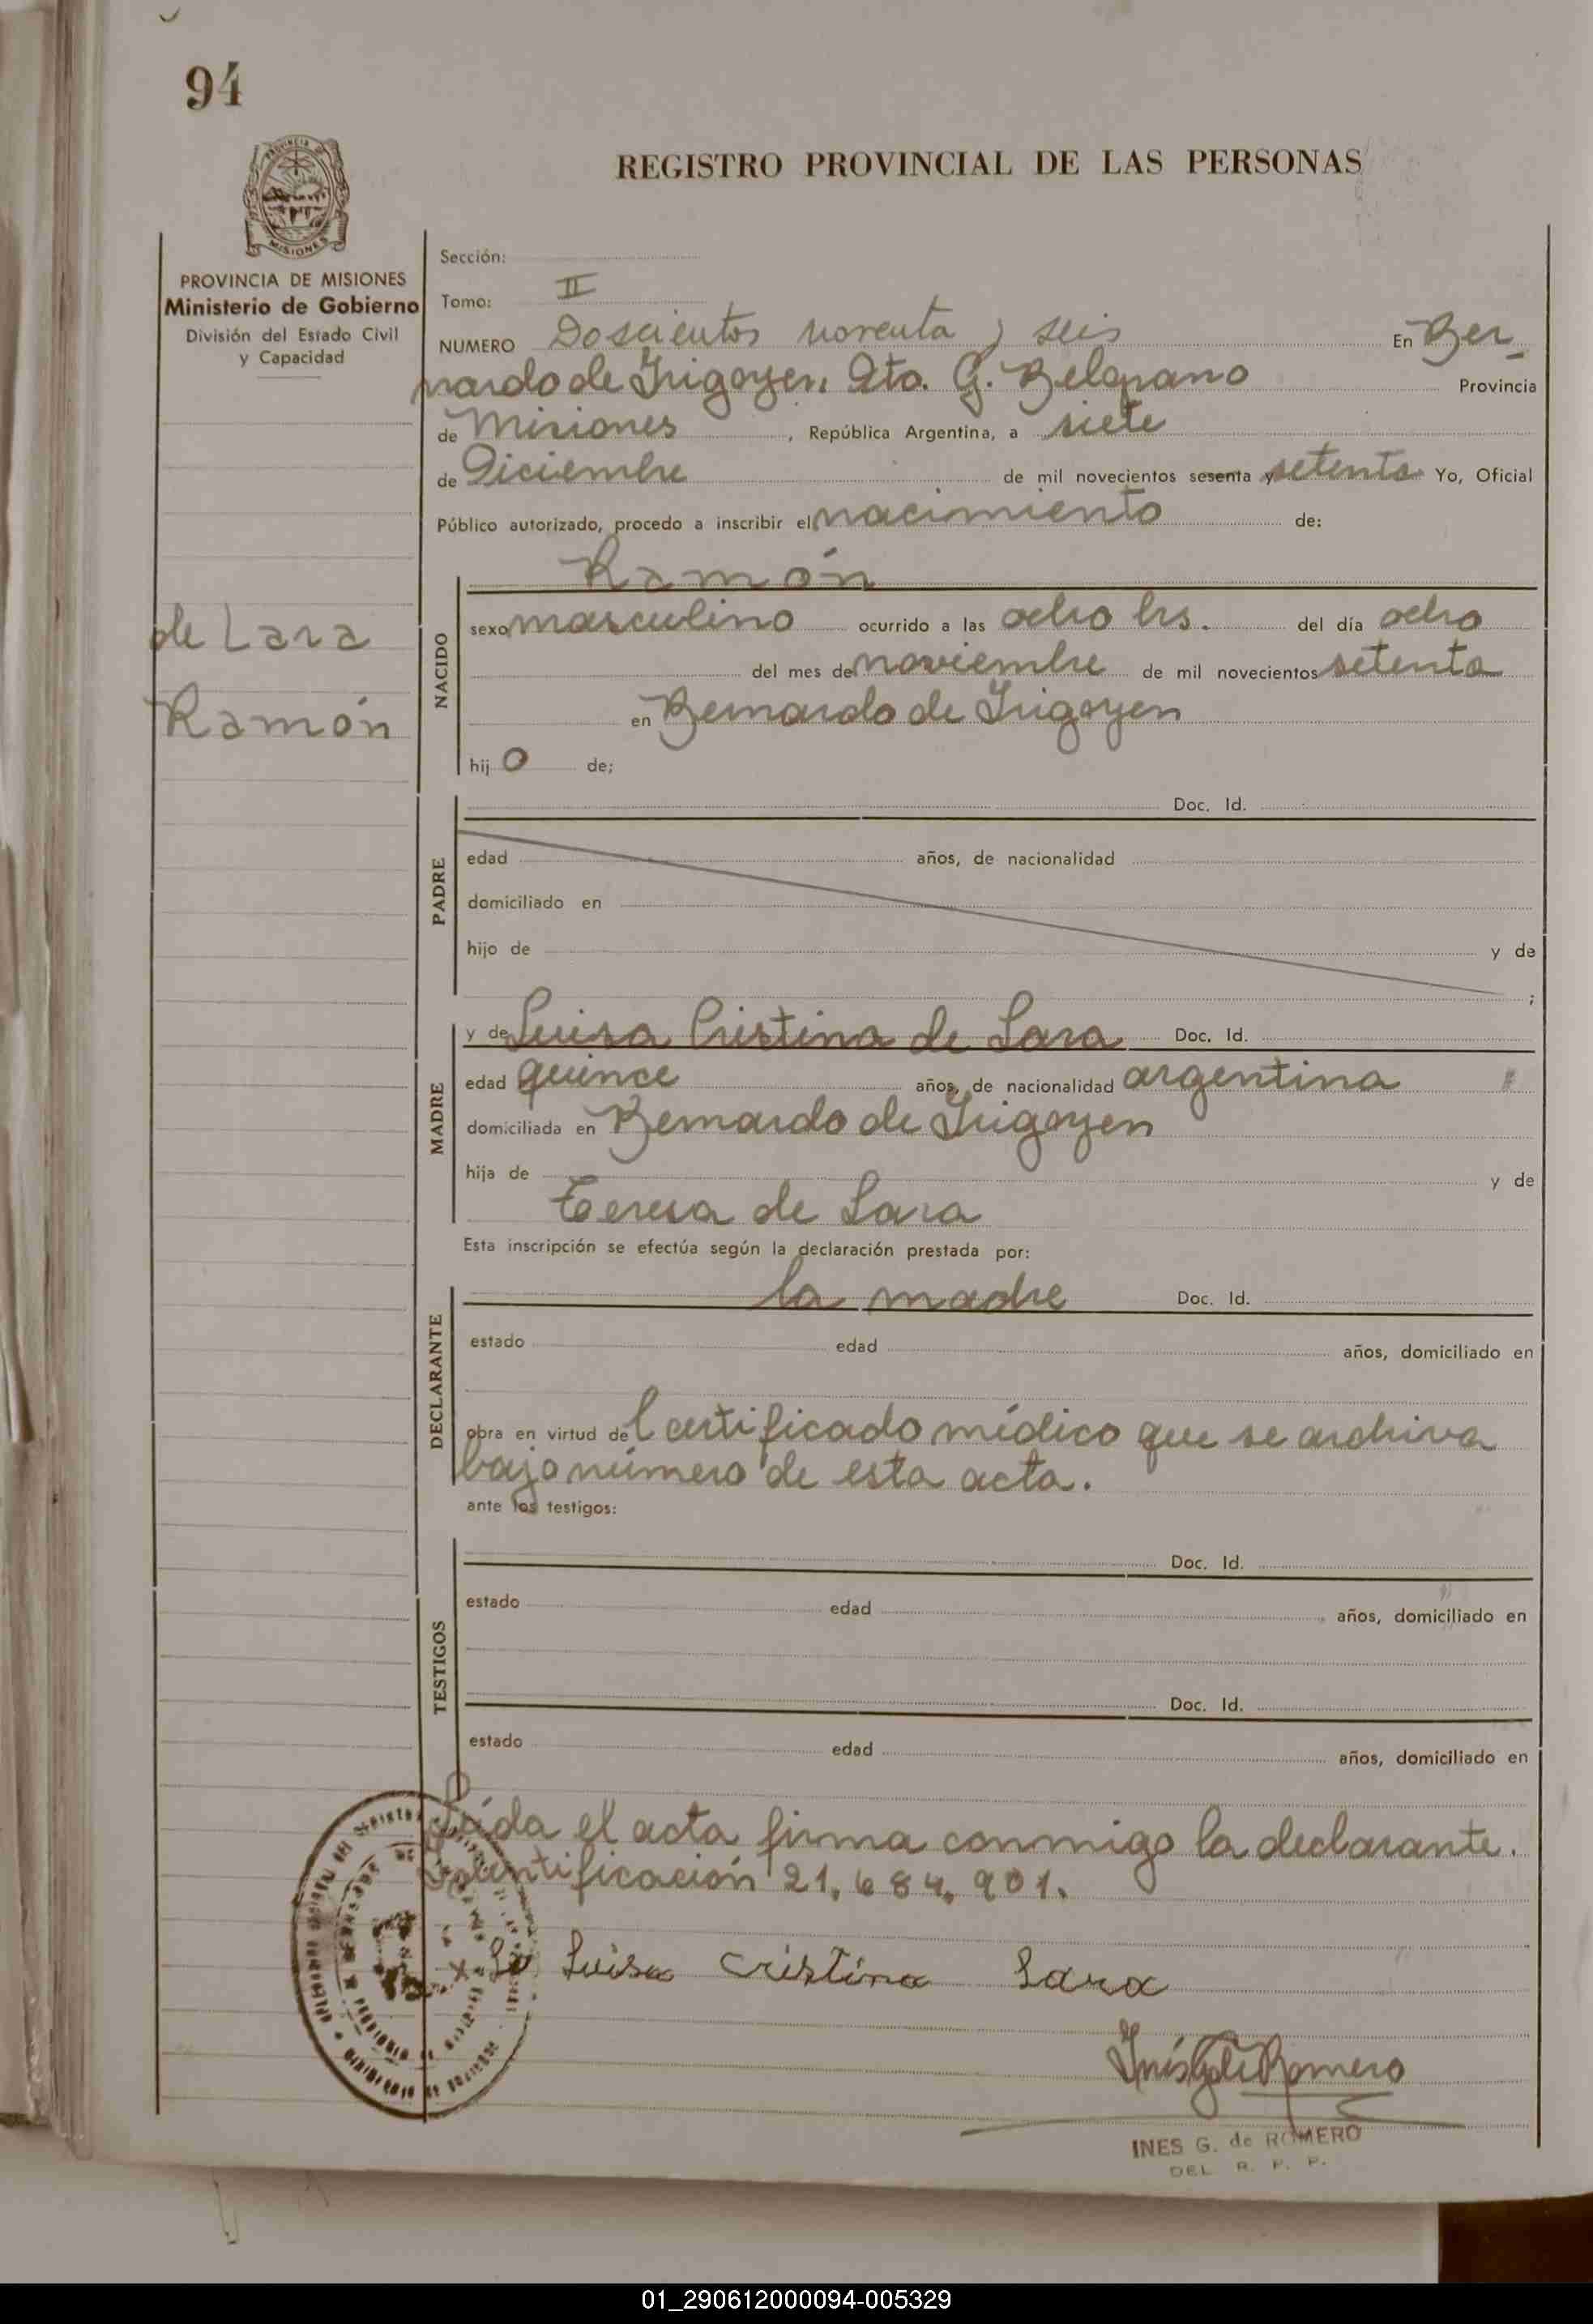 94
REGISTRO PROVINCIAL DE LAS PERSONAS
PROVINCIA DE
MISIONES
PROVINCIA DE MISIONES
Ministerio de Gobierno
División del Estado Civil
y Capacidad
de Lara
Ramón
Sección:
Tomo: II
NUMERO Doscientos noventa y seis En Ber-
nardo de Irigoyen. Dto. G. Belgrano Provincia
de Misiones , República Argentina, a siete
de Diciembre de mil novecientos sesenta y setenta Yo, Oficial
Público autorizado, procedo a inscribir el nacimiento de:
NACIDO
Ramón
sexo masculino ocurrido a las ocho hrs. del día ocho
del mes de noviembre de mil novecientos setenta
en Bernardo de Irigoyen
hij o de;
PADRE
Doc. Id.
edad años, de nacionalidad
domiciliado en
hijo de y de
;
MADRE
y de Luisa Cristina de Lara Doc. Id.
edad quince años, de nacionalidad argentina
domiciliada en Bernardo de Irigoyen
hija de y de
Teresa de Lara
Esta inscripción se efectúa según la declaración prestada por:
DECLARANTE
la madre Doc. Id.
estado edad años, domiciliado en
obra en virtud del certificado médico que se archiva
bajo número de esta acta.
ante los testigos:
TESTIGOS
Doc. Id.
estado edad años, domiciliado en
Doc. Id.
estado edad años, domiciliado en
Leída el acta firma conmigo la declarante.
Identificación 21.684.901.
x Lu Luisa Cristina Lara
Inés G de Romero
INES G. de ROMERO
DEL R. P. P.
01_290612000094-005329